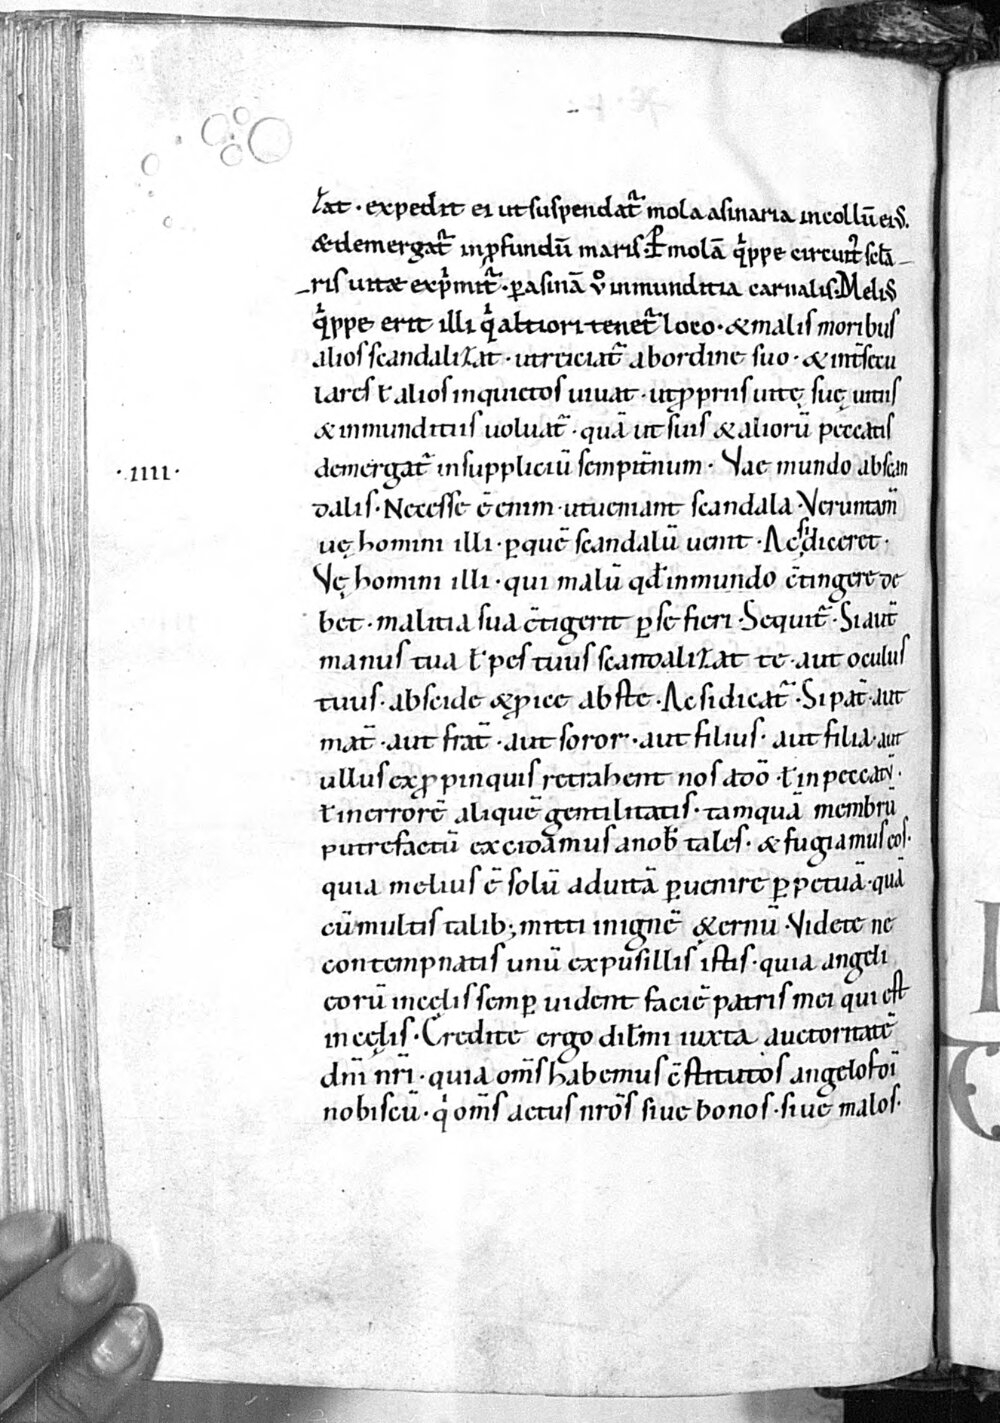 zat · expedit ei ut suspendat̃ mola asinaria in collũ eiꝰ.
& demergat̃ in ꝓfundũ maris. P molã q̇ppe circuit̃ sclã
ris uitæ exp̃mit̃ · ꝑ asinã ů inmunditia carnalis. Meliꝰ
q̇ppe erit illi q̇ altiori tenet̃ loco · & malis moribus
alios scandalizat · ut reiciat̃ ab ordine suo · & int̃ secu
lares ł alios inquietos uiuat · ut ꝓpriis uitę suę uitiis
& inmunditiis uoluat̃ · quã ut suis & aliorũ peccatis
demergat̃ in suppliciũ sempit̃num · Vae mundo ab scan
dalis · Necesse ẽ enim · ut ueniant scandala · Veruntam̃
·IIII·
uę homini illi · ꝑ quẽ scandalũ uenit · Ac si diceret ·
Vę homini illi · qui malũ qđ in mundo c̃tingere de
bet · malitia sua c̃tigerit ꝑ se fieri · Sequit̃ · Si aut̃
manus tua ł pes tuus scandalizat te · aut oculus
tuus · abscide & ꝓice abs te · Ac si dicat̃ · Si pat̃ · aut
mat̃ · aut frat̃ · aut soror · aut filius · aut filia · aut
ullus ex ꝓpinquis retrahent nos a dõ · ł in peccatũ ·
ł in errorẽ aliquẽ gentilitatis · tamquã membrũ
putrefactũ excidamus a nob̃ tales · & fugiamus eos ·
quia melius ẽ solũ ad uitã ꝑuenire ꝑpetuã · quã
cũ multis talib; mitti in ignẽ &̨ernũ · Videte ne
contempnatis unũ ex pusillis istis · quia angeli
eorũ in cęlis semꝑ uident faciẽ patris mei qui est
in cęlis · Credite ergo dil̃mi iuxta auctoritatẽ
dñi nr̃i · quia om̃s habemus c̃stitutos angelos oĩ
nobiscũ · q̇ om̃s actus nr̃os siue bonos · siue malos ·